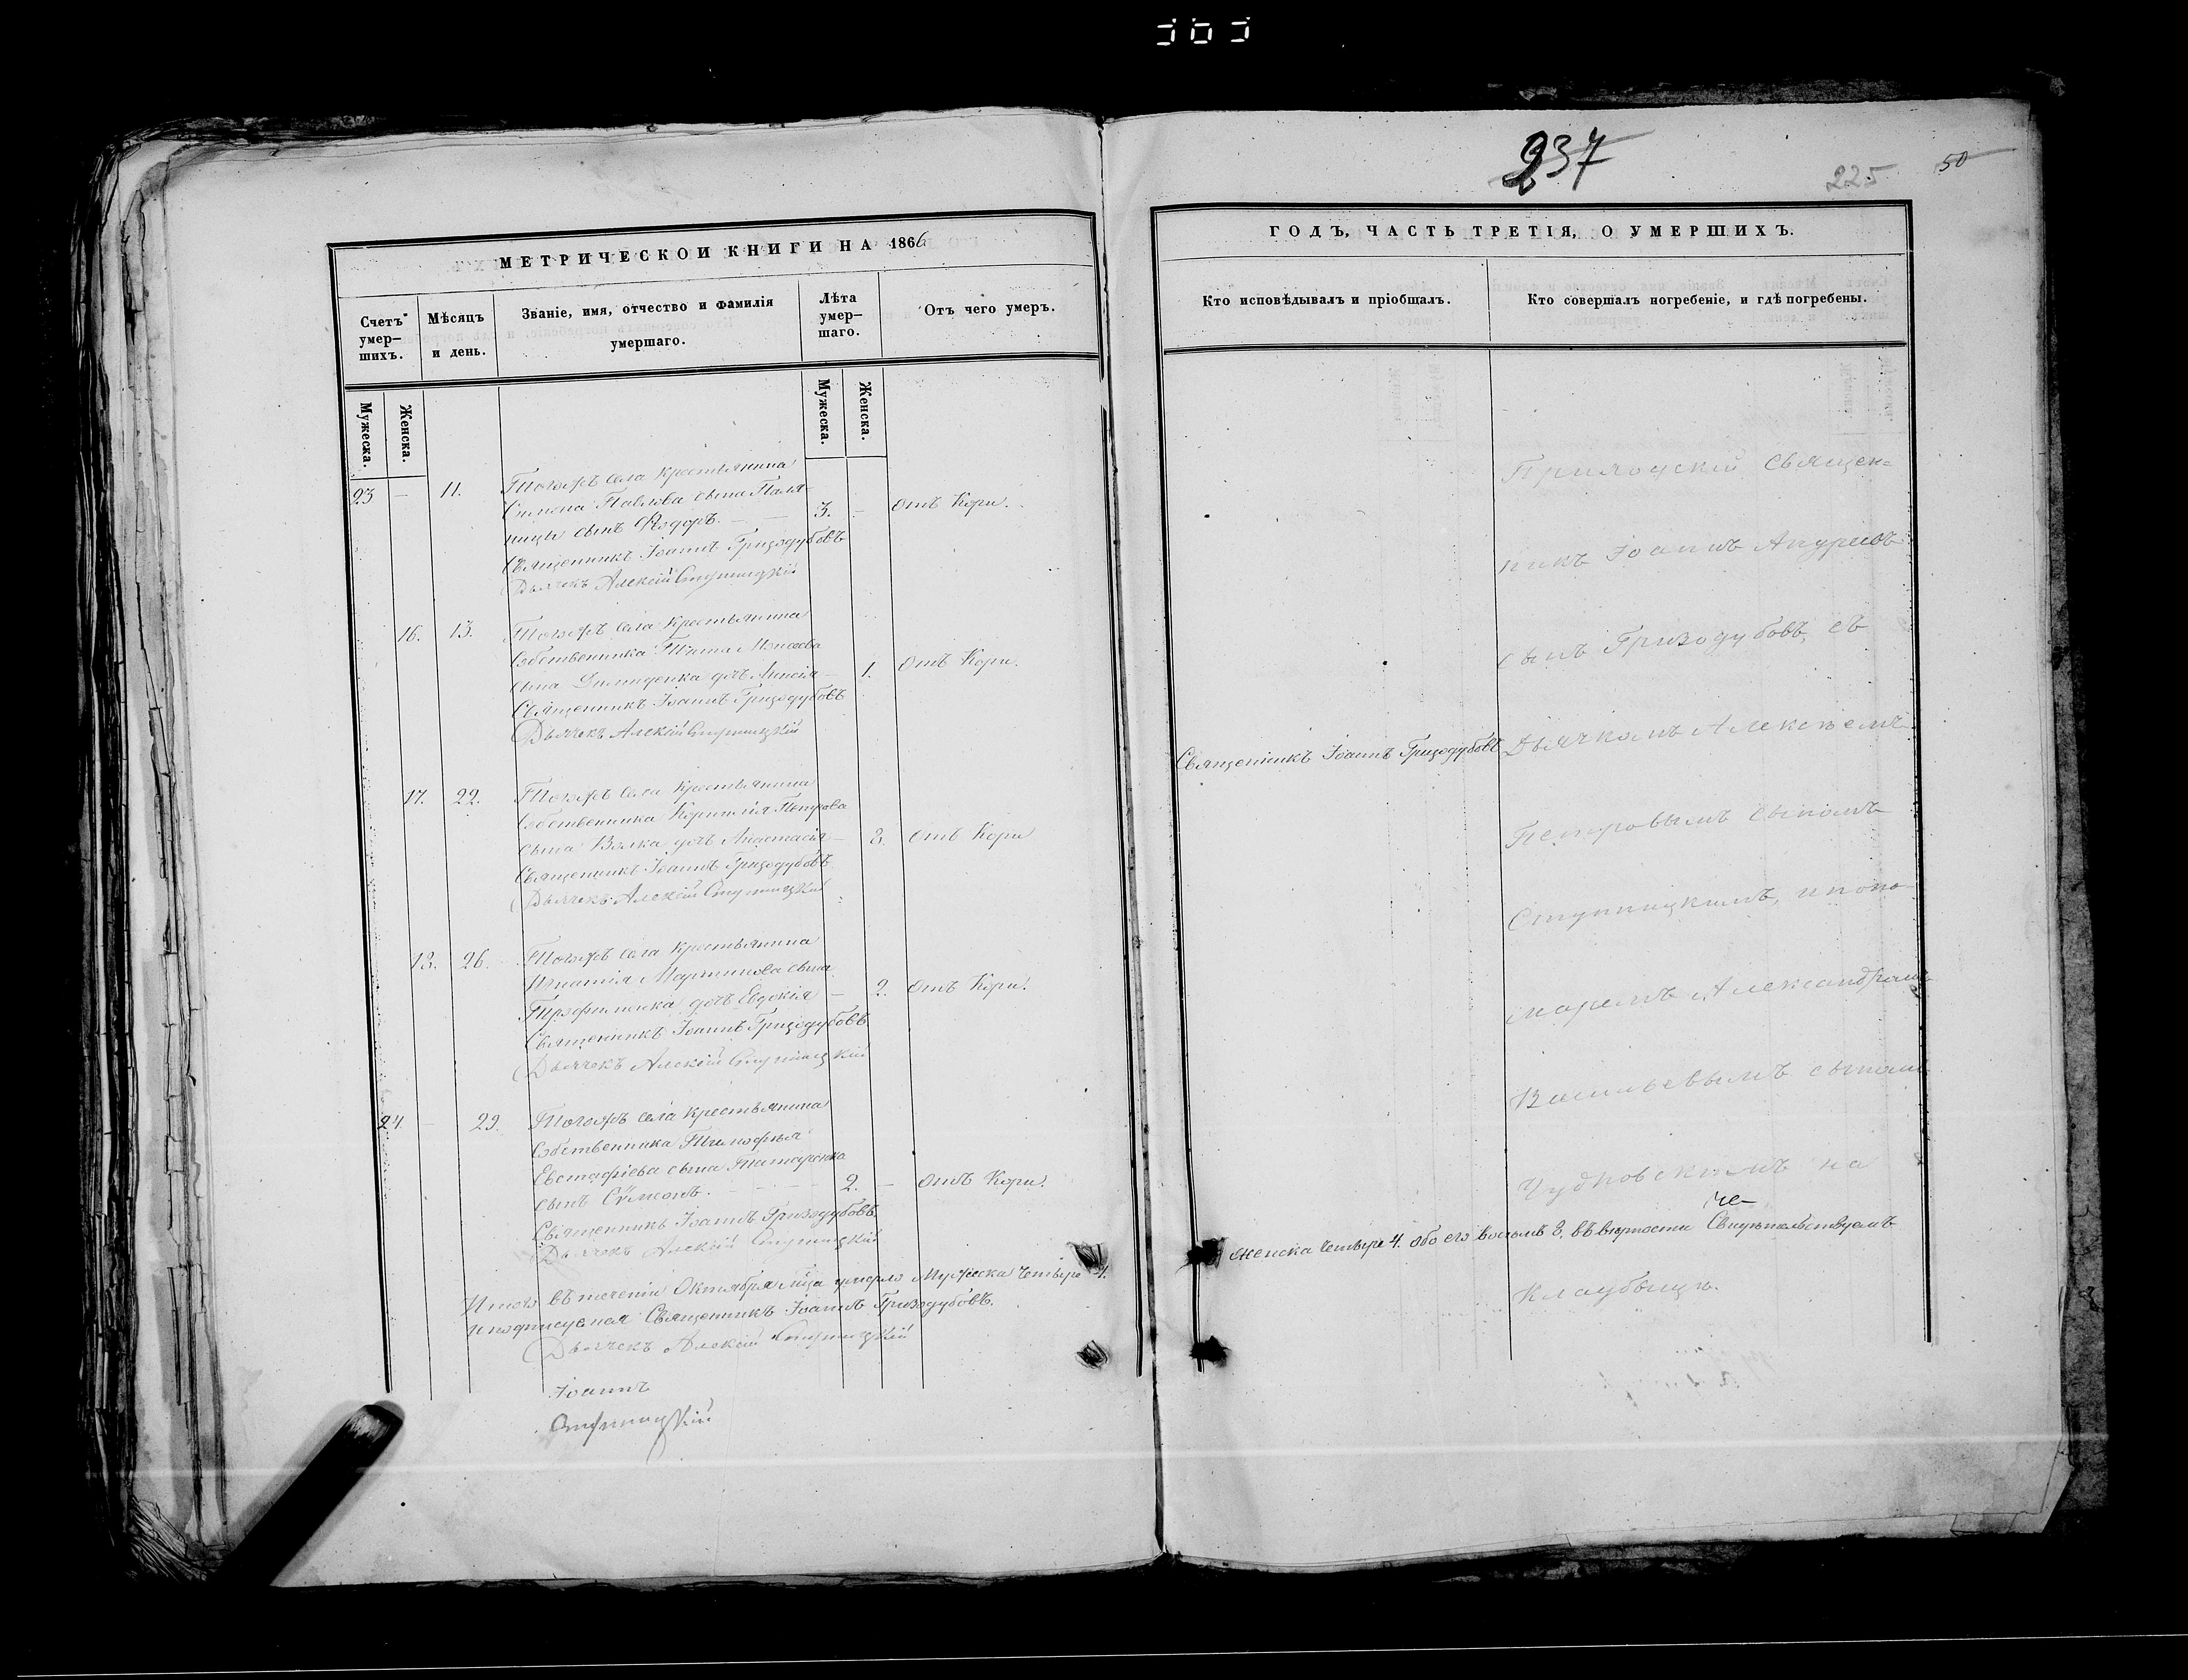 237
225
50
МЕТРИЧЕСКОЙ КНИГИ НА 1866
Счетъ умер-
шихъ.
Мѣсяцъ
и день.
Званіе, имя, отчество и фамилія
умершаго.
Лѣта
умер-
шаго.
Отъ чего умеръ.
Мужеска.
Женска.
Мужеска.
Женска.
23 — 11. Тогожъ села крестьянина
Симона Павлова сына Паля-
ницы сынъ Ѳедоръ. — — 3. — Отъ Кори.
Священникъ Іоаннъ Гризодубовъ
Дьячекъ Алексій Ступницкій
16. 13. Тогожъ села крестьянина
Собственника Тита Моисеева
сына Демиденка дочь — 1. Отъ Кори.
Священникъ Іоаннъ Гризодубовъ
Дьячекъ Алексій Ступницкій
17. 22. Тогожъ села крестьянина
Собственника Корнилія Петрова
сына Волка дочь Анастасія — 3. Отъ Кори
Священникъ Іоаннъ Гризодубовъ
Дьячекъ Алексій Ступницкій
18. 26. Тогожъ села крестьянина
Игнатія Мартинова сына
Трофименка дочь Евдокія — 2. Отъ Кори.
Священникъ Іоаннъ Гризодубовъ
Дьячекъ Алексій Ступницкій
24 — 29. Тогожъ села крестьянина
Собственника Тимофея
Евстафіева сына Татаренка
сынъ Сѵмеонъ. — — — 2. — Отъ Кори.
Священникъ Іоаннъ Гризодубовъ
Дьячекъ Алексій Ступницкій
Итого въ теченіи Октября мца умерло Мужеска четыре 4.
Священникъ Іоаннъ Гризодубовъ.
Дьячекъ Алексій Ступницкій
Іоаннъ
Ступницкій
ГОДЪ, ЧАСТЬ ТРЕТІЯ, О УМЕРШИХЪ.
Кто исповѣдывалъ и пріобщалъ.
Кто совершалъ погребеніе, и гдѣ погребены.
Священникъ Іоаннъ Гризодубовъ
Приходскій Священ=
никъ Іоаннъ Андреевъ
сынъ Гризодубовъ, съ
Дьячкомъ Алексѣемъ
Петровымъ сыномъ
Ступницкимъ, и поно-
маремъ Александромъ
Васильевымъ сыномъ
Чудновскимъ на
женска четыре 4. обоего восемь 8. въ вѣрности Свидѣтельствуемъ
Кладбищѣ.